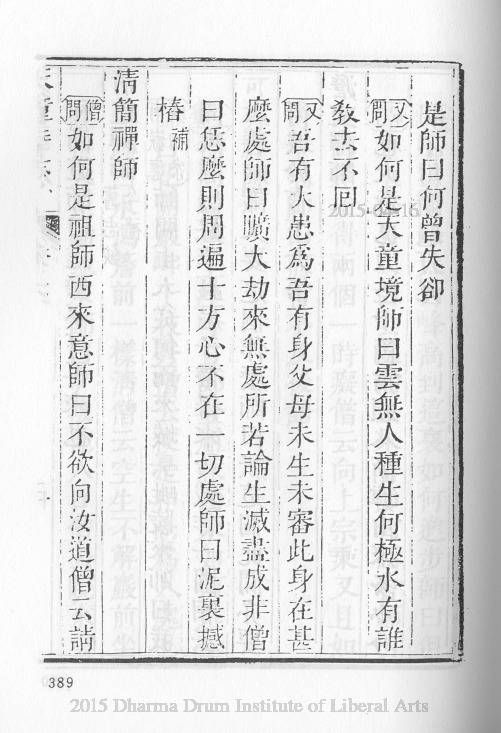 是師曰何曾失卻
又問如何是天童境師曰雲無人種生何極水有誰
教去不回
又問吾有大患爲吾有身父母未生未審此身在甚
麼處師曰曠大劫來無處所若論生滅盡成非僧
曰恁麼則周遍十方心不在一切處師曰泥裏撼
樁補
清簡禪師
僧問如何是祖師西來意師曰不欲向汝道僧云請
389
2015 Dharma Drum Institute of Liberal Arts